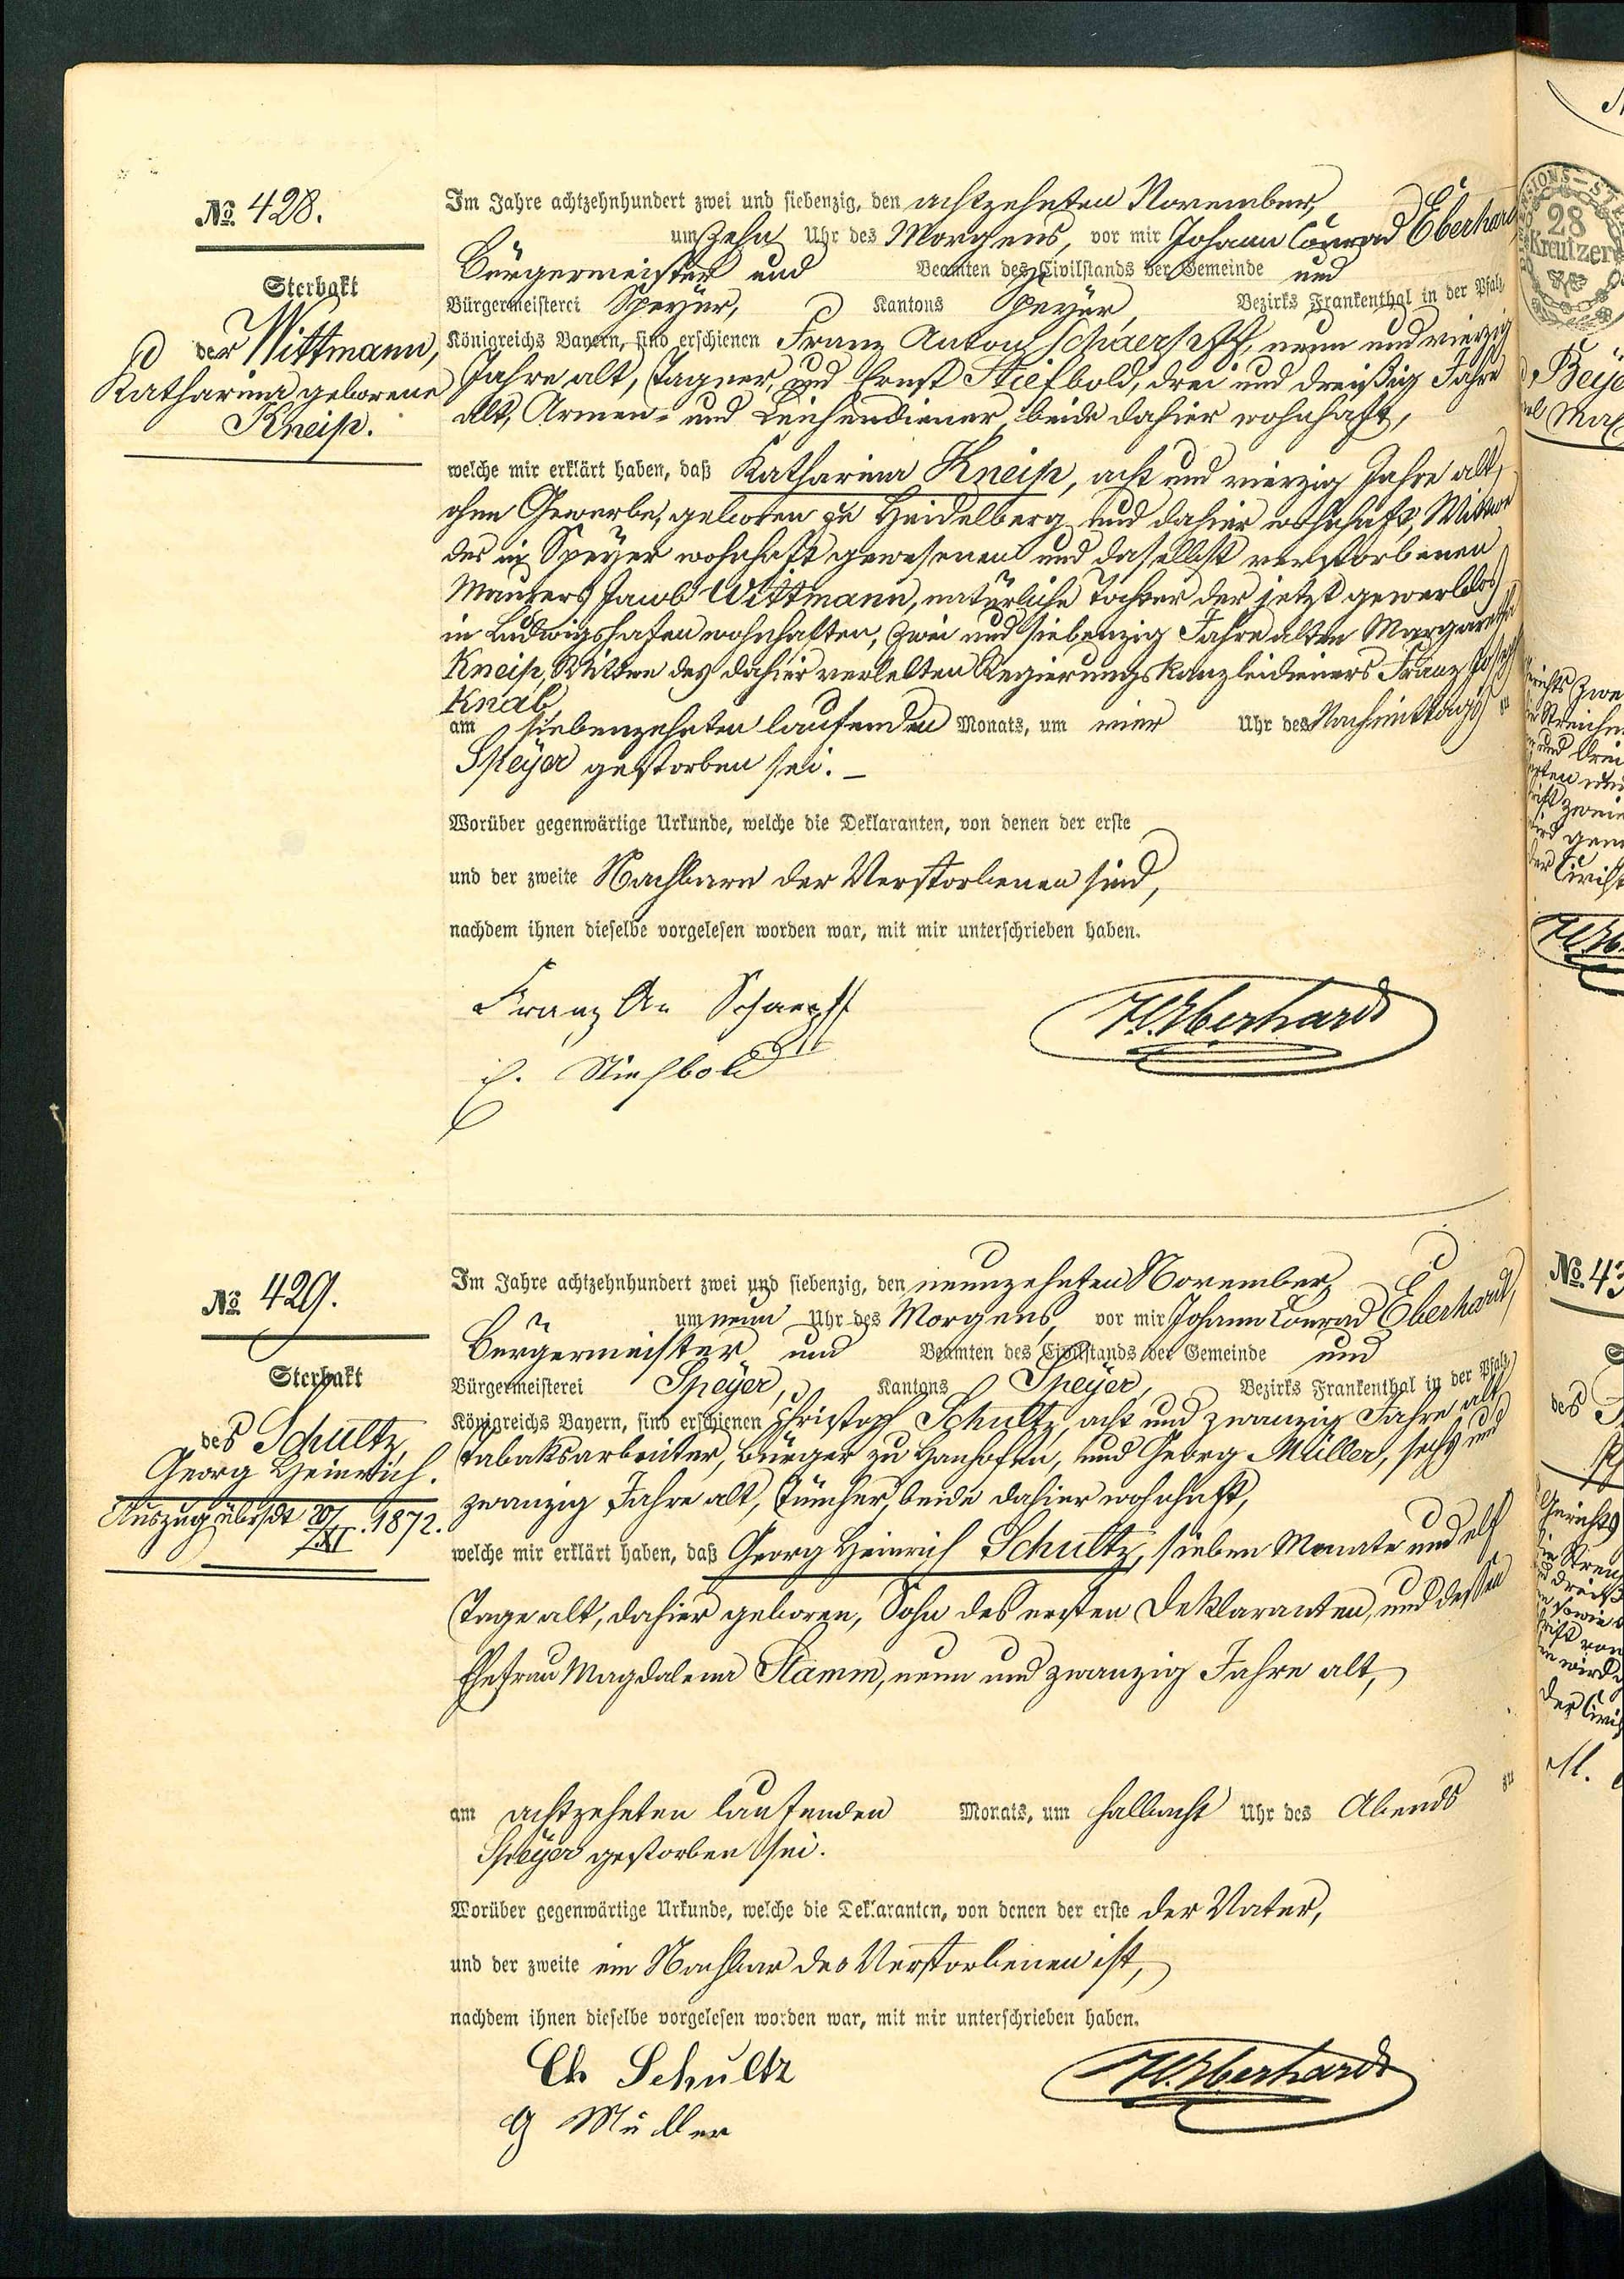 No. 428.
Sterbakt
der Wittmann,
Katharina geborene
Kneip.
Im Jahre achtzehnhundert zwei und siebenzig, den achtzehnten November,
um zehn Uhr des Morgens, vor mir Johann Conrad Eberhardt
Bürgermeister und Beamten des Civilstands der Gemeinde und
Bürgermeisterei Speyer, Kantons Speyer, Bezirks Frankenthal in der Pfalz
Königreichs Bayern, sind erschienen Franz Anton neun und vierzig
Jahre alt, Tagner, und Ernst Stiefbold, drei und dreißig Jahre
alt, Armen- und Leichendiener, beide dahier wohnhaft,
welche mir erklärt haben, daß Katharina Kneip, acht und vierzig Jahre alt,
ohne Gewerbe, geboren zu Heidelberg und dahier wohnhaft, Wittwe
des in Speyer wohnhaft gewesenen und daselbst verstorbenen
Maurers Jacob Wittmann, natürliche Tochter der jetzt gewerblos
in Ludwigshafen wohnhaften, zwei und siebenzig Jahre alten Margaretha
Kneip, Wittwe des dahier verlebten Regierungskanzleidieners Franz Joseph
Knab,
am siebenzehnten laufenden Monats, um vier Uhr des Nachmittags zu
Speyer gestorben sei. –
Worüber gegenwärtige Urkunde, welche die Deklaranten, von denen der erste
und der zweite Nachbarn der Verstorbenen sind,
nachdem ihnen dieselbe vorgelesen worden war, mit mir unterschrieben haben.
Franz An Schaepff
E. Stiefbold
Eberhardt
No. 429.
Sterbakt
des Schultz,
Georg Heinrich.
Auszug übersdt 20/XI. 1872.
Im Jahre achtzehnhundert zwei und siebenzig, den neunzehnten November,
um neun Uhr des Morgens, vor mir Johann Conrad Eberhardt,
Bürgermeister und Beamten des Civilstands der Gemeinde und
Bürgermeisterei Speyer, Kantons Speyer, Bezirks Frankenthal in der Pfalz
Königreichs Bayern, sind erschienen Christoph Schultz, acht und zwanzig Jahre alt
Tabaksarbeiter, Bürger zu Hanhofen, und Georg Müller, sechs und
zwanzig Jahre alt, Tüncher, beide dahier wohnhaft,
welche mir erklärt haben, daß Georg Heinrich Schultz, sieben Monate und elf
Tage alt, dahier geboren, Sohn des ersten Deklaranten, und dessen
Ehefrau Magdalena Stamm, neun und zwanzig Jahre alt,
am achtzehnten laufenden Monats, um halbacht Uhr des Abends zu
Speyer gestorben sei.
Worüber gegenwärtige Urkunde, welche die Deklaranten, von denen der erste der Vater,
und der zweite ein Nachbar des Verstorbenen ist,
nachdem ihnen dieselbe vorgelesen worden war, mit mir unterschrieben haben.
Ch Schultz
G Müller
Eberhardt
28
Kreutzer
No. 43